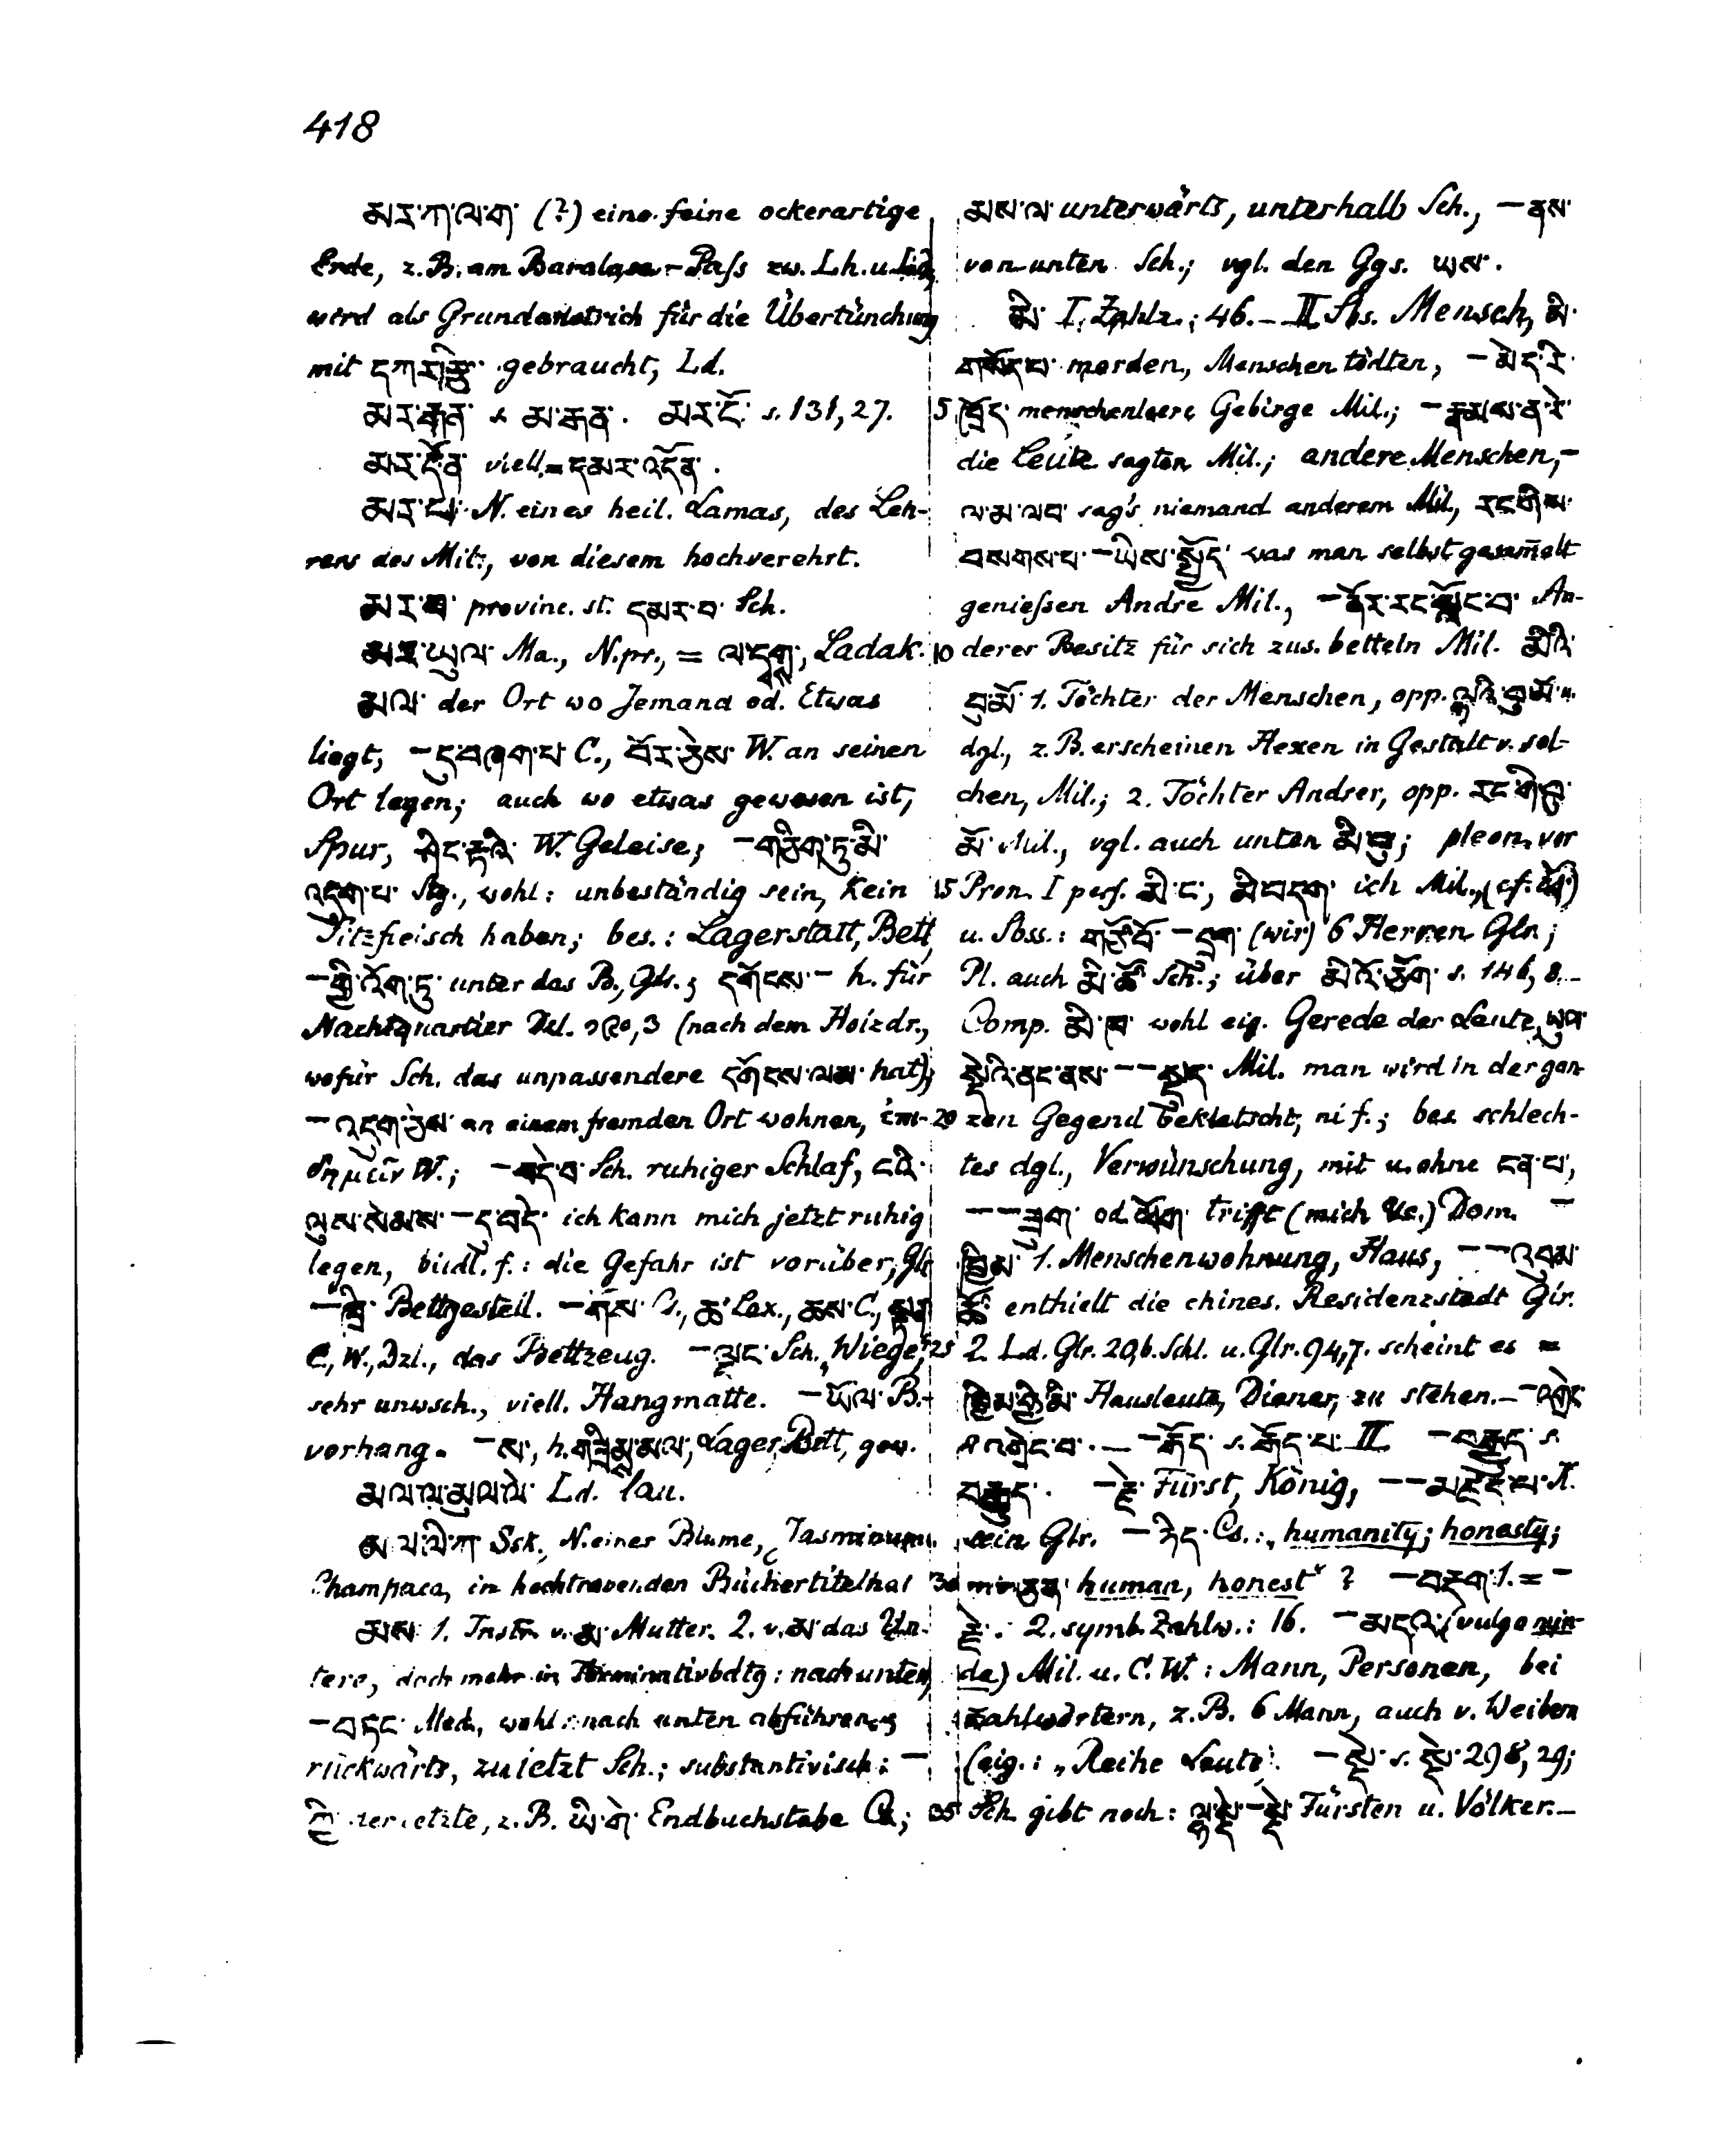 418
མར་ཀ་ལ་ག་ (?) eine feine ockerartige
Erde, z. B. am Baralasa-Paſs zw. Lh. u.
wird als Grundanstrich für die Übertünchung
mit དཀར་རྩི་ gebraucht, Ld.
མར་རྒན་ s. མ་རྒན་. མར་ངོ་ s. 131, 27.
མར་དོན་ viell. = དམར་འདོན་.
མར་པ་ N. eines heil. Lamas, des Leh-
rers des Mil., von diesem hochverehrt.
མར་བ་ provinc. st. དམར་བ་ Sch.
མར་ཡུལ་ Ma., N. pr., = ལ་དྭགས་, Ladak.
མལ་ der Ort wo Jemand od. Etwas
liegt, –དུ་བཞག་པ་ C., བོར་ཅེས་ W. an seinen
Ort legen; auch wo etwas gewesen ist,
Spur, ཤིང་རྟའི་ W. Geleise; –གཅིག་ཏུ་མི་
འདུག་པ་ Stg., wohl: unbeständig sein, kein
Sitzfleisch haben; bes.: Lagerstatt, Bett,
–གྱི་འོག་ཏུ་ unter das B., Glr.; དགོངས– h. für
Nachtquartier Dzl. ༢༨༠, 3 (nach dem Holzdr.,
wofür Sch. das unpassendere དགོངས་ལམ་ hat);
–འདུག་ཅེས་ an einem fremden Ort wohnen, ἐπι-
δημεῖν W.; –བདེ་བ་ Sch. ruhiger Schlaf, ངའི་
ལུས་སེམས་–དུ་བདེ་ ich kann mich jetzt ruhig
legen, bildl. f.: die Gefahr ist vorüber, Glr.
–ཁྲི་ Bettgestell. –གོས་ Cs., ཆ་ Lex., ཆས་ C.,
C., W., Dzl., das Bettzeug. Sch. „Wiege,"
sehr unwsch., viell. Hangmatte. –ཡོལ་ B.-
vorhang. –ས་, h. གཟིམ་མལ་, Lager, Bett, gew.
མལ་ལ་མུལ་ལེ་ Ld. lau.
མ་ལི་ཀ་ Ssk., N. einer Blume, Jasminum
Champaca, in hochtrabenden Büchertiteln
མས་ 1. Instr. v. མ་ Mutter. 2. v. མ་ das Un-
tere, doch mehr in Terminativbdtg: nach unten,
–བཏང་ Med., wohl: nach unten abführen;
rückwärts, zuletzt Sch.; substantivisch: –
ཀྱི་ der letzte, z. B. ཡི་གེ་ Endbuchstabe Cs.;
མས་ལ་ unterwärts, unterhalb Sch., –ནས་
von unten Sch.; vgl. den Ggs. ཡས་.
མི་ I. Zahlz.: 46. – II. Sbs. Mensch, མི་
གསོད་པ་ morden, Menschen tödten, –མེད་རི་
5 ཁྲོད་ menschenleere Gebirge Mil.; –རྣམས་ན་རེ་
die Leute sagten Mil.; andere Menschen, –
ལ་མ་ལབ་ sag's niemand anderem Mil., རང་གིས་
བསགས་པ་–ཡིས་སྤྱོད་ was man selbst gesam̄elt
genieſsen Andre Mil., –ནོར་རང་སློང་བ་ An-
10 derer Besitz für sich zus. betteln Mil. མིའི་
བུ་མོ་ 1. Töchter der Menschen, opp. ལྷའི་བུ་མོ་ u.
dgl., z. B. erscheinen Hexen in Gestalt v. sol-
chen, Mil.; 2. Töchter Andrer, opp. རང་གི་བུ་
མོ་ Mil., vgl. auch unten མི་བུ་; pleon. vor
15 Pron. I pers. མི་ང་, མི་བདག་ ich Mil., (cf.
u. Sbss.: གཙོ་བོ་–དྲུག་ (wir) 6 Herren Glr.;
Pl. auch མི་ཚོ་ Sch.; über མི་འོ་ཅོག་ s. 146, 8. –
Comp. མི་ཁ་ wohl eig. Gerede der Leute, ཡུལ་
སྡེའི་ནང་ནས་ Mil. man wird in der gan-
20 zen Gegend beklatscht, ni f.; bes. schlech-
tes dgl., Verwünschung, mit u. ohne ངན་པ་,
od. ཕོག་ trifft (mich etc.) Dom. –
ཁྱིམ་ 1. Menschenwohnung, Haus, – –འབུམ་
ཚོ་ enthielt die chines. Residenzstadt Glr.
25 2. Ld. Glr. 20, b. Schl. u. Glr. 94, 7. scheint es =
ཁྱིམ་གྱི་མི་ Hausleute, Diener, zu stehen. –
s. འགྲེང་བ་. – –རྒོད་ s. རྒོད་པ་ II. –བརྒྱུད་ s.
བརྒྱུད་. –རྗེ་ Fürst, König, – –མཛད་པ་ K.
sein Glr. –ཉིད་ Cs.: „humanity; honesty;
30 human, honest" ? –བདག་ 1. = –
རྗེ་. 2. symb. Zahlw.: 16. –མདའ་ (vulgo min-
da) Mil. u. C. W.: Mann, Personen, bei
Zahlwörtern, z. B. 6 Mann, auch v. Weibern
(eig.: „Reihe Leute". –སྡེ་ s. སྡེ་ 298, 29;
35 Sch. gibt noch: ལྷ་སྡེ་–སྡེ་ Fürsten u. Völker. –